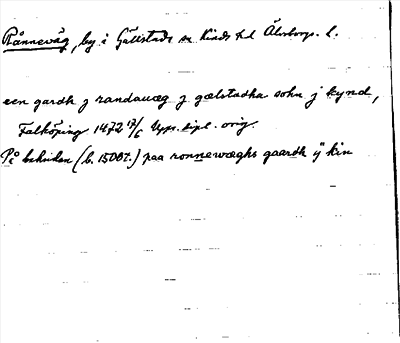 Rånneväg, by i Gällstads sn Kinds hd Älvsborgs l.
een gardh j randauæg j gælstadha sohn j kynd,
Falköping 1472 17/6 Upps. dipl. orig.
På baksidan (b. 1500t.) paa ronnewæghs gaardh ij kin